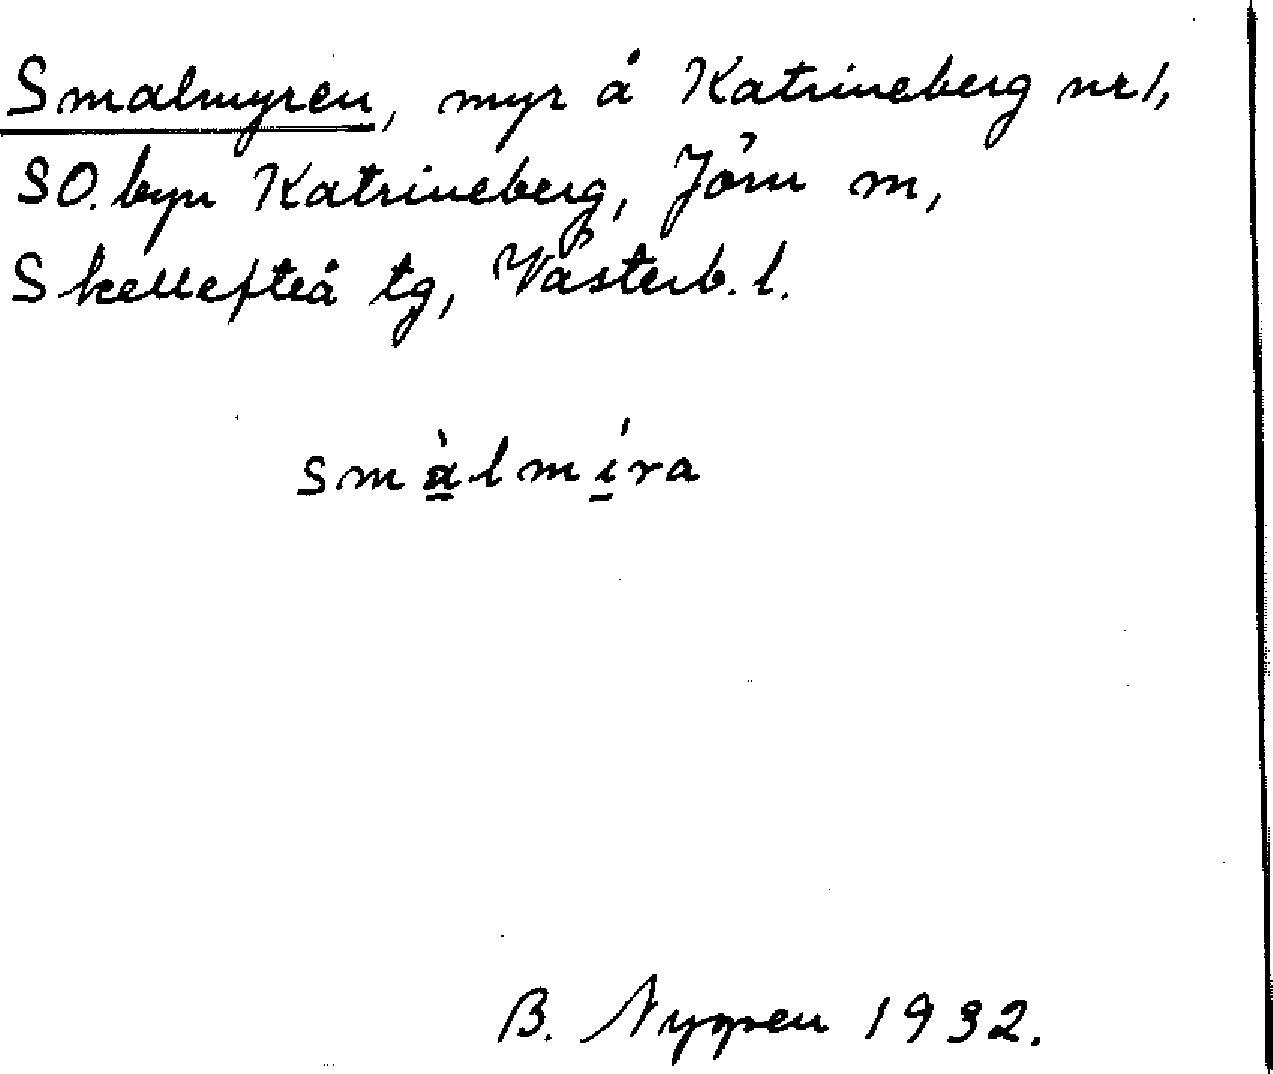 Smalmyren, myr å Katrineberg nr 1,
SO. byn Katrineberg, Jörn sn,
Skellefteå tg, Västerb. l.
smàlmíra
B. Nygren 1932.